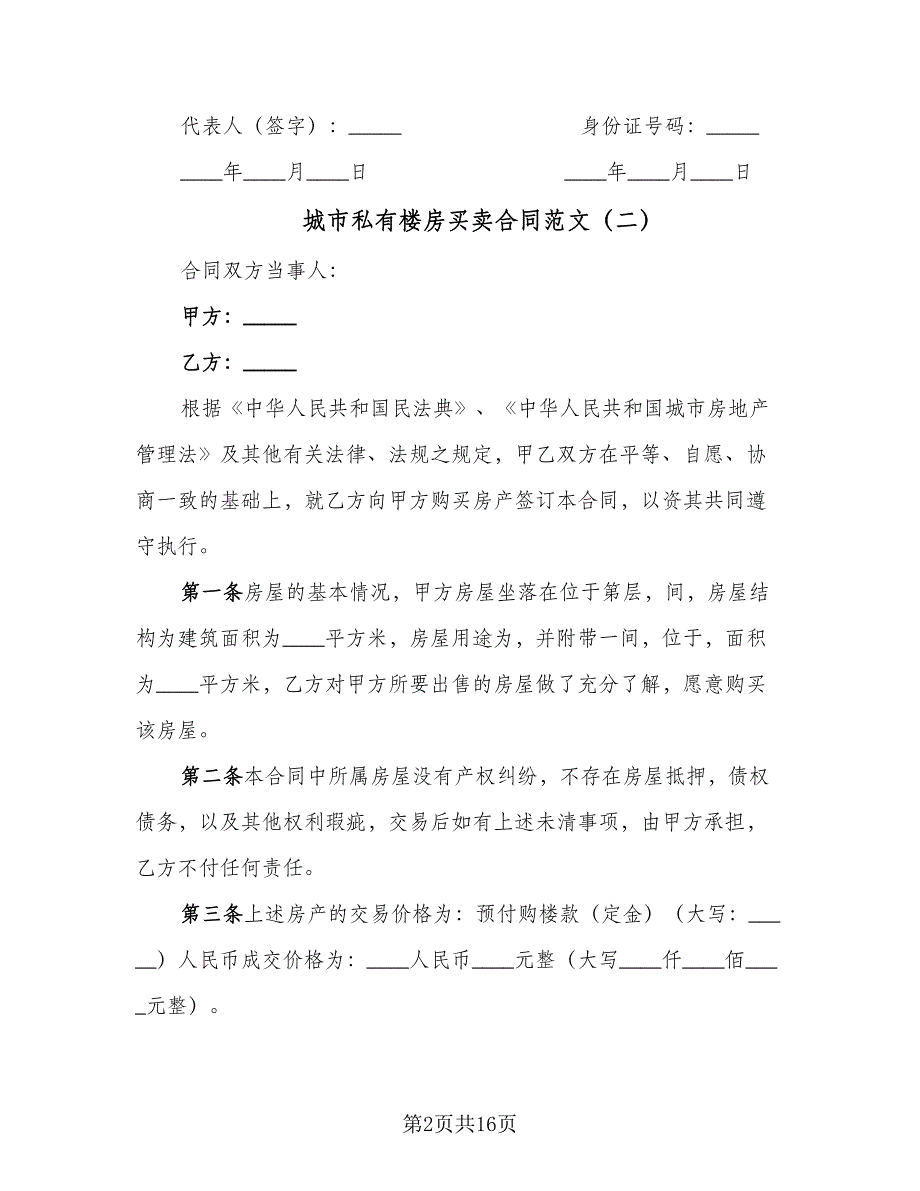 代表人（签字）：_____ 身份证号码：_____
____年____月____日 ____年____月____日
城市私有楼房买卖合同范文（二）
合同双方当事人：
甲方：_____
乙方：_____
根据《中华人民共和国民法典》、《中华人民共和国城市房地产
管理法》及其他有关法律、法规之规定，甲乙双方在平等、自愿、协
商一致的基础上，就乙方向甲方购买房产签订本合同，以资其共同遵
守执行。
第一条房屋的基本情况，甲方房屋坐落在位于第层，间，房屋结
构为建筑面积为____平方米，房屋用途为，并附带一间，位于，面积
为____平方米，乙方对甲方所要出售的房屋做了充分了解，愿意购买
该房屋。
第二条本合同中所属房屋没有产权纠纷，不存在房屋抵押，债权
债务，以及其他权利瑕疵，交易后如有上述未清事项，由甲方承担，
乙方不付任何责任。
第三条上述房产的交易价格为：预付购楼款（定金）（大写：___
__）人民币成交价格为：____人民币____元整（大写____仟____佰___
_元整）。
第2页共16页